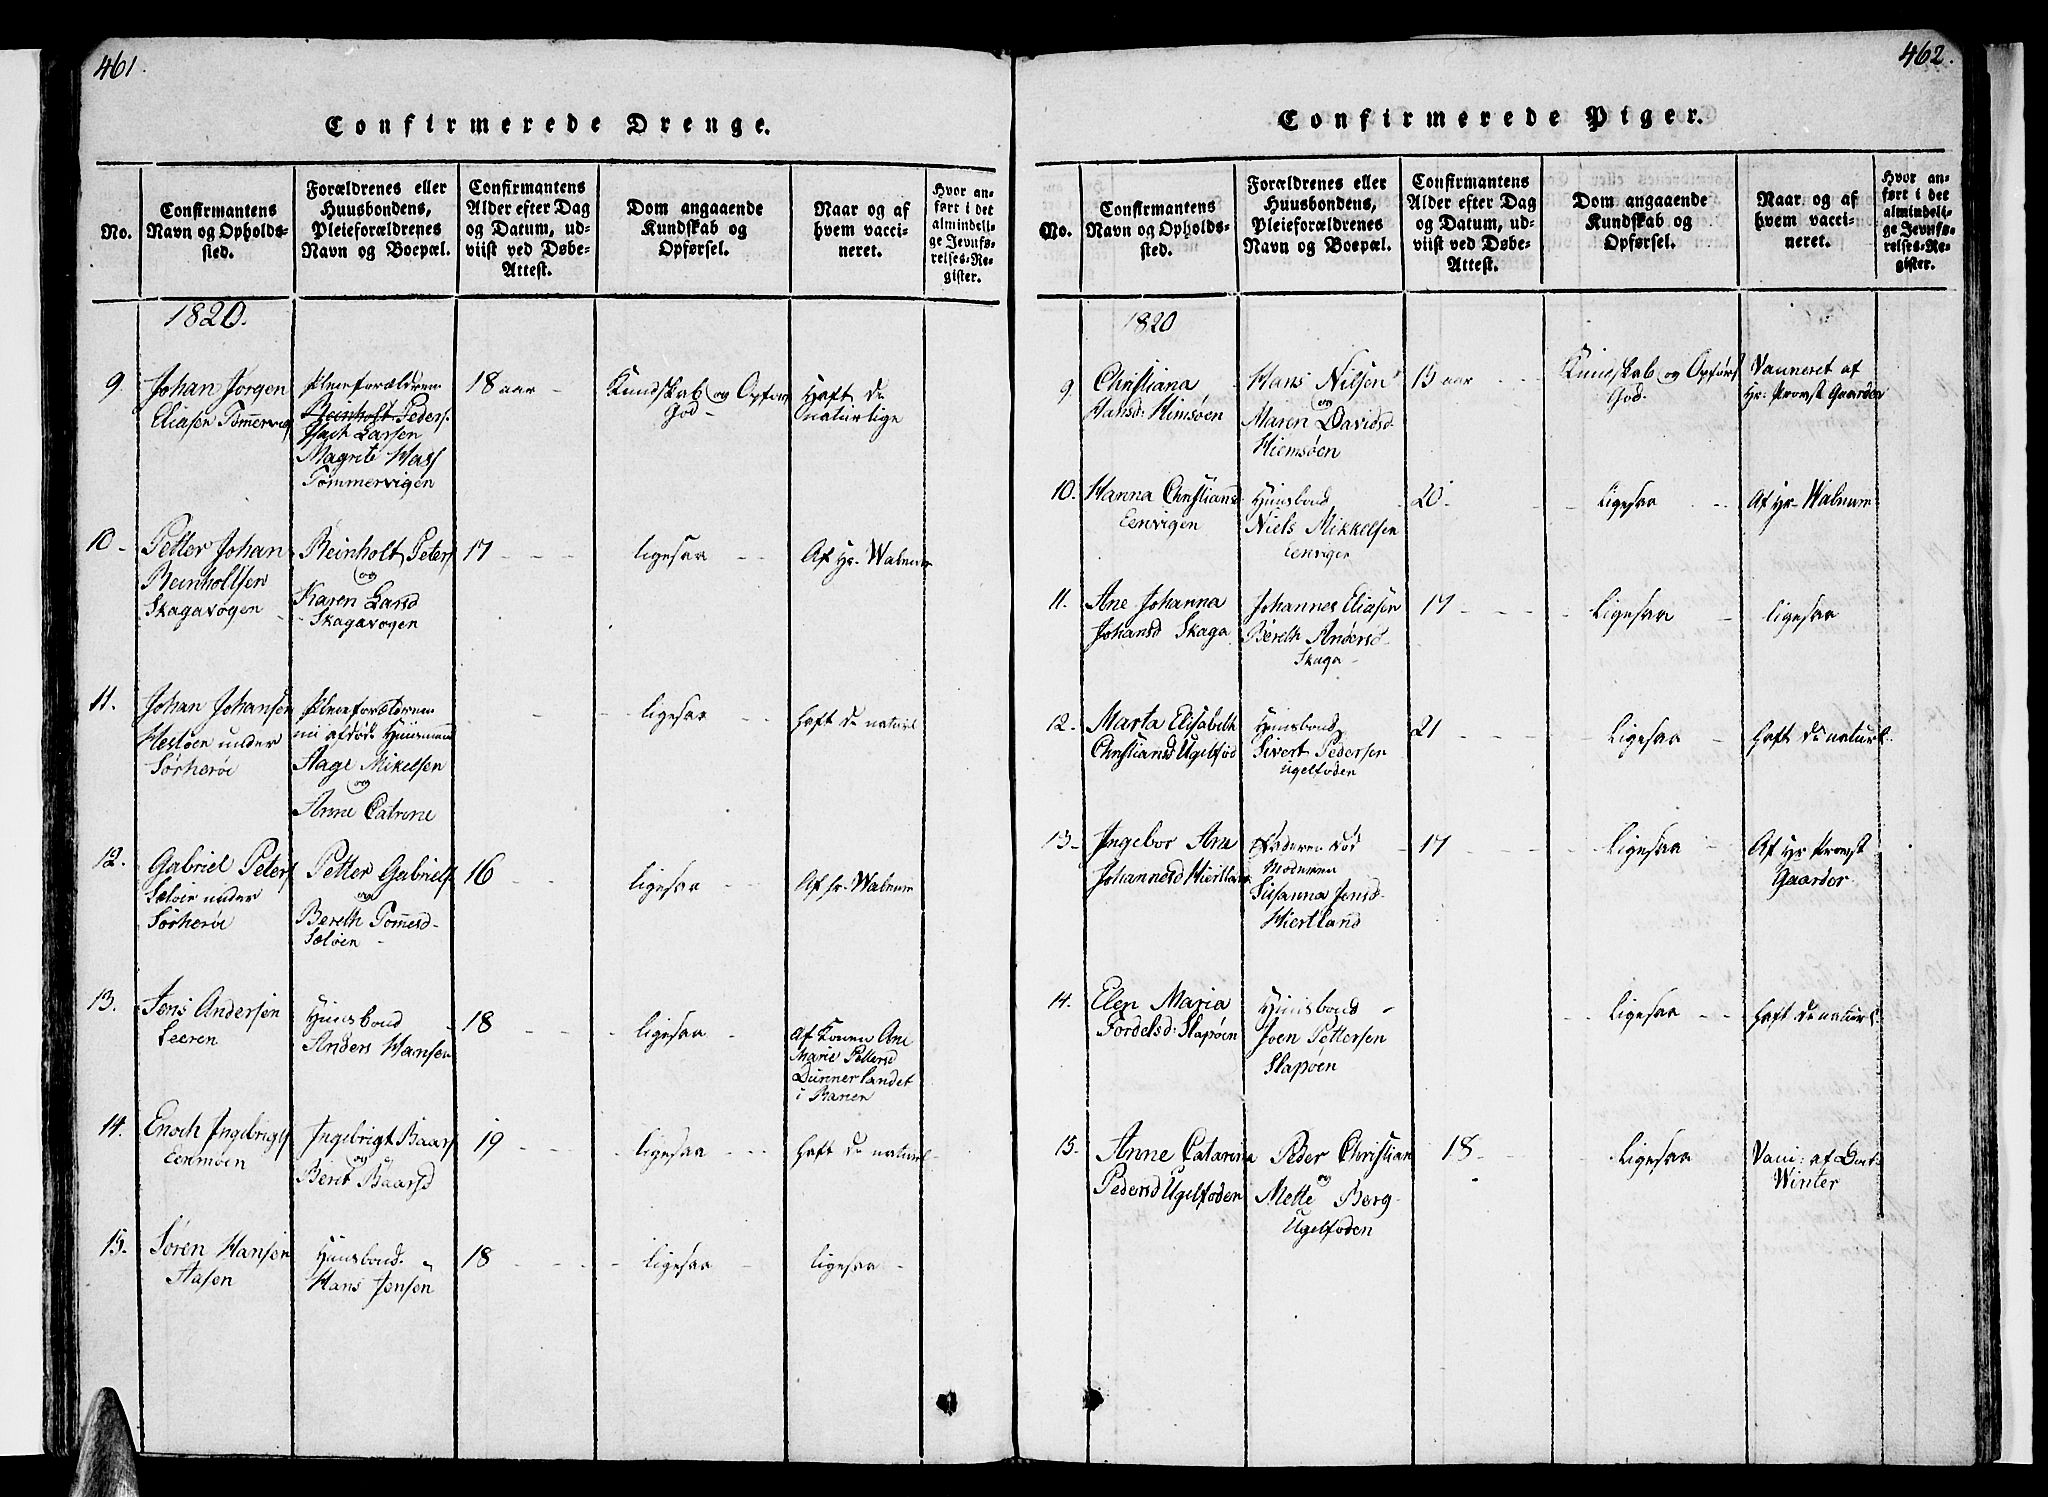 461.
Confirmerede Drenge.
No.
Confirmantens Navn og Opholdssted.
Forældrenes eller Huusbondens, Pleieforældrenes Navn og Boepæl.
Confirmantens Alder efter Dag og Datum, udviist ved Døbe-Attest.
Dom angaaende Kundskab og Opførsel.
Naar og af hvem vaccineret.
Hvor anført i det almindelige Jevnførelses-Register.
1820.
9. Johan Jørgen
Eliasen Tømmervig
Pleieforældrene
Reinholt Peders.
Lassen
Magrete Hass
Tømmervigen
18 aar
Kundskab og Opførs
God
Haft de
naturlige
10 Petter Johan
Reinholtsen
Skagavogen
Reinholt Peters
og
Karen Larsd
Skagavogen
17
ligesaa
Af Hr. Walnum
11. Johan Johansen
Hestøen under
Sørherøe
Pleieforælderne
nu afdøde Huusmand
Aage Mikelsen
og
Anne Catrine
ligesaa
haft de naturl
12. Gabriel Peters
Sæløen under
Sørherøe
Petter Gabriels
og
Bereth Tommesd
Sæløen
16
ligesaa
Af hr. Walnum
13. Jens Andersen
Leeren
Huusbond
Anders Hansen
18
ligesaa
Af Konen Ane
Marie Pettersd
Dunnerlandet
i Ranen
14. Enoch Ingebrigts
Eenmoen
Ingebrigt Baars
og
Berit Baarsd
19
ligesaa
haft de naturl
15. Søren Hansen
Aasen
Huusbond.
Hans Jensen
18
ligesaa
ligesaa
462.
Confirmerede Piger.
No.
Confirmantens Navn og Opholdssted.
Forældrenes eller Huusbondens, Pleieforældrenes Navn og Boepæl.
Confirmantens Alder efter Dag og Datum, udviist ved Døbe-Attest.
Dom angaaende Kundskab og Opførsel.
Naar og af hvem vaccineret.
Hvor anført i det almindelige Jevnførelses-Register.
1820
9 Christiana
Hansd: Himsøen
Hans Nilsen
og
Maren Davidsd
Hiemsøen
15 aar
Kundskab og Opførs
God.
Vanneret af
Hr. Provst Gaarder
10. Hanna Christiansd
Eenvigen
Huusbond
Niels Mikkelsen
Eenvigen
20
Ligesaa
Af Hr. Walnum
11. Ane Johanna
Johansd Skaga
Johannes Eliasen
Bereth Andersd
Skaga
17
Ligesaa
ligesaa
12. Marta Elisabeth
Christiansd Ugelfod
Huusbond
Sivert Pedersen
Ugelfoden
21
Ligesaa
Haft de naturl.
13 Ingebor Ane
Johannesd Hiertland
Faderen død
Moderen
Susanna Jensd
Hiertland
17
Ligesaa
Af Hr Provst
Gaarder
14. Elen Maria
Fordelsd: Slapøen
Huusbond
Joen Pettersen
Slapøen
Ligesaa
haft de naturl.
15. Anne Catarina
Pedersd Ugelfoden
Peder Christian
og
Mette Berg
Ugelfoden
18
Ligesaa
Vani: af
Winter